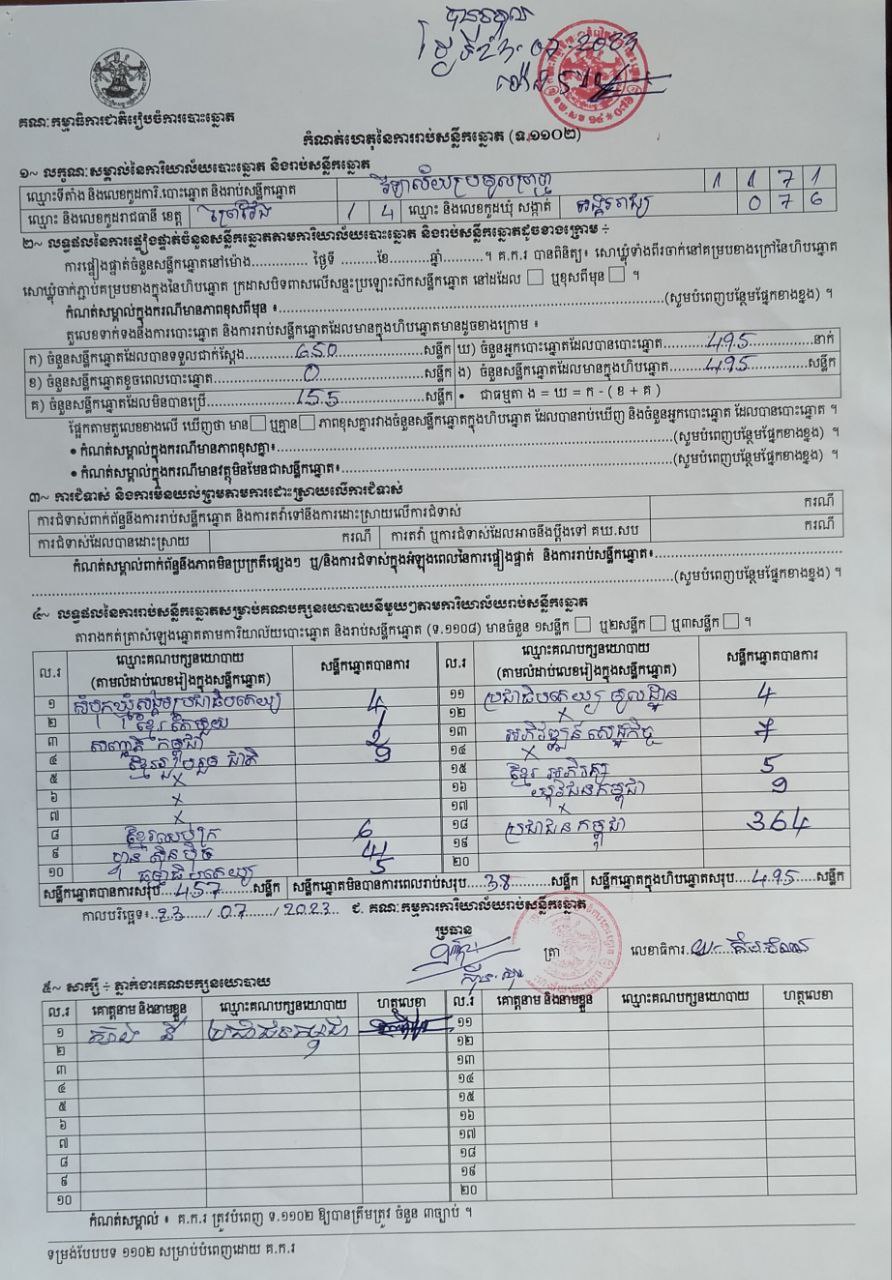 បានទទួល
ថ្ងៃទី 23.07.2023
គណៈកម្មាធិការជាតិរៀបចំការបោះឆ្នោត
កំណត់ហេតុនៃការរាប់សន្លឹកឆ្នោត (ទ.១១០២)
១~ លក្ខណៈសម្គាល់នៃការិយាល័យបោះឆ្នោត និងរាប់សន្លឹកឆ្នោត
ឈ្មោះទីតាំង និងលេខកូដការិ.បោះឆ្នោត និងរាប់សន្លឹកឆ្នោត វិទ្យាល័យប្រមូលប្រាជ្ញា 1 1 7 1
ឈ្មោះ និងលេខកូដរាជធានី ខេត្ត ព្រៃវែង 1 4 ឈ្មោះ និងលេខកូដឃុំ សង្កាត់ អង្គររាជ្យ 0 7 6
២~ លទ្ធផលនៃការផ្ទៀងផ្ទាត់ចំនួនសន្លឹកឆ្នោតតាមការិយាល័យបោះឆ្នោត និងរាប់សន្លឹកឆ្នោតដូចខាងក្រោម ÷
ការផ្ទៀងផ្ទាត់ចំនួនសន្លឹកឆ្នោតនៅម៉ោង............. ថ្ងៃទី .........ខែ...........ឆ្នាំ..........។ គ.ក.រ បានពិនិត្យ៖ សោឃ្លុំទាំងពីរចាក់នៅគម្របខាងក្រៅនៃហិបឆ្នោត
សោឃ្លុំចាក់ភ្ជាប់គម្របខាងក្នុងនៃហិបឆ្នោត ក្រដាសបិទពាសលើសន្ទះប្រឡោះស៊កសន្លឹកឆ្នោត នៅដដែល ☐ ឬខុសពីមុន ☐ ។
កំណត់សម្គាល់ក្នុងករណីមានភាពខុសពីមុន ៖..........(សូមបំពេញបន្ថែមផ្នែកខាងខ្នង) ។
តួលេខទាក់ទងនឹងការបោះឆ្នោត និងការរាប់សន្លឹកឆ្នោតដែលមានក្នុងហិបឆ្នោតមានដូចខាងក្រោម ៖
ក) ចំនួនសន្លឹកឆ្នោតដែលបានទទួលជាក់ស្តែង.......650.......សន្លឹក ឃ) ចំនួនអ្នកបោះឆ្នោតដែលបានបោះឆ្នោត.......495.......នាក់
ខ) ចំនួនសន្លឹកឆ្នោតខូចពេលបោះឆ្នោត.......0.......សន្លឹក ង) ចំនួនសន្លឹកឆ្នោតដែលមានក្នុងហិបឆ្នោត.......495.......សន្លឹក
គ) ចំនួនសន្លឹកឆ្នោតដែលមិនបានប្រើ.......155.......សន្លឹក • ជាធម្មតា ង = ឃ = ក - ( ខ + គ )
ផ្អែកតាមតួលេខខាងលើ ឃើញថា មាន ☐ ឬគ្មាន ☐ ភាពខុសគ្នារវាងចំនួនសន្លឹកឆ្នោតក្នុងហិបឆ្នោត ដែលបានរាប់ឃើញ និងចំនួនអ្នកបោះឆ្នោត ដែលបានបោះឆ្នោត ។
• កំណត់សម្គាល់ក្នុងករណីមានភាពខុសគ្នា៖..........(សូមបំពេញបន្ថែមផ្នែកខាងខ្នង) ។
• កំណត់សម្គាល់ក្នុងករណីមានវត្ថុមិនមែនជាសន្លឹកឆ្នោត៖..........(សូមបំពេញបន្ថែមផ្នែកខាងខ្នង) ។
៣~ ការជំទាស់ និងការមិនយល់ព្រមតាមការដោះស្រាយលើការជំទាស់
ការជំទាស់ពាក់ព័ន្ធនឹងការរាប់សន្លឹកឆ្នោត និងការតវ៉ាទៅនឹងការដោះស្រាយលើការជំទាស់ ករណី
ការជំទាស់ដែលបានដោះស្រាយ ករណី ការតវ៉ា ឬការជំទាស់ដែលអាចនឹងប្តឹងទៅ គឃ.សប ករណី
កំណត់សម្គាល់ពាក់ព័ន្ធនឹងភាពមិនប្រក្រតីផ្សេងៗ ឬ/និងការជំទាស់ក្នុងអំឡុងពេលនៃការផ្ទៀងផ្ទាត់ និងការរាប់សន្លឹកឆ្នោត៖..........
..........(សូមបំពេញបន្ថែមផ្នែកខាងខ្នង) ។
៤~ លទ្ធផលនៃការរាប់សន្លឹកឆ្នោតសម្រាប់គណបក្សនយោបាយនីមួយៗតាមការិយាល័យរាប់សន្លឹកឆ្នោត
តារាងកត់ត្រាសំឡេងឆ្នោតតាមការិយាល័យបោះឆ្នោត និងរាប់សន្លឹកឆ្នោត (ទ.១១០៨) មានចំនួន ១សន្លឹក ☐ ឬ២សន្លឹក ☐ ឬ៣សន្លឹក ☐ ។
ល.រ ឈ្មោះគណបក្សនយោបាយ (តាមលំដាប់លេខរៀងក្នុងសន្លឹកឆ្នោត) សន្លឹកឆ្នោតបានការ ល.រ ឈ្មោះគណបក្សនយោបាយ (តាមលំដាប់លេខរៀងក្នុងសន្លឹកឆ្នោត) សន្លឹកឆ្នោតបានការ
១ សំបុកឃ្មុំសង្គមប្រជាធិបតេយ្យ 4 ១១ ប្រជាធិបតេយ្យ មូលដ្ឋាន 4
២ ខ្មែរតែមួយ 1 ១២ x
៣ សញ្ជាតិ កម្ពុជា 2 ១៣ អភិវឌ្ឍន៍ សេដ្ឋកិច្ច 7
៤ ខ្មែររួបរួម ជាតិ 9 ១៤ x
៥ x ១៥ ខ្មែរ អភិរក្ស 5
៦ x ១៦ យុវជនកម្ពុជា 9
៧ x ១៧ x
៨ ខ្មែរឈប់ក្រ 6 ១៨ ប្រជាជនកម្ពុជា 364
៩ ហ្វ៊ុនស៊ិនប៉ិច 41 ១៩
១០ ធម្មាធិបតេយ្យ 5 ២០
សន្លឹកឆ្នោតបានការសរុប....457....សន្លឹក សន្លឹកឆ្នោតមិនបានការពេលរាប់សរុប...38....សន្លឹក សន្លឹកឆ្នោតក្នុងហិបឆ្នោតសរុប....495....សន្លឹក
កាលបរិច្ឆេទ៖..23../07../2023 ជ. គណៈកម្មការការិយាល័យរាប់សន្លឹកឆ្នោត
ប្រធាន
ត្រា លេខាធិការ
៥~ សាក្សី ÷ ភ្នាក់ងារគណបក្សនយោបាយ
ល.រ គោត្តនាម និងនាមខ្លួន ឈ្មោះគណបក្សនយោបាយ ហត្ថលេខា ល.រ គោត្តនាម និងនាមខ្លួន ឈ្មោះគណបក្សនយោបាយ ហត្ថលេខា
១ ប្រជាជនកម្ពុជា ១១
២ ១២
៣ ១៣
៤ ១៤
៥ ១៥
៦ ១៦
៧ ១៧
៨ ១៨
៩ ១៩
១០ ២០
កំណត់សម្គាល់ ៖ គ.ក.រ ត្រូវបំពេញ ទ.១១០២ ឱ្យបានត្រឹមត្រូវ ចំនួន ៣ច្បាប់ ។
ទម្រង់បែបបទ ១១០២ សម្រាប់បំពេញដោយ គ.ក.រ